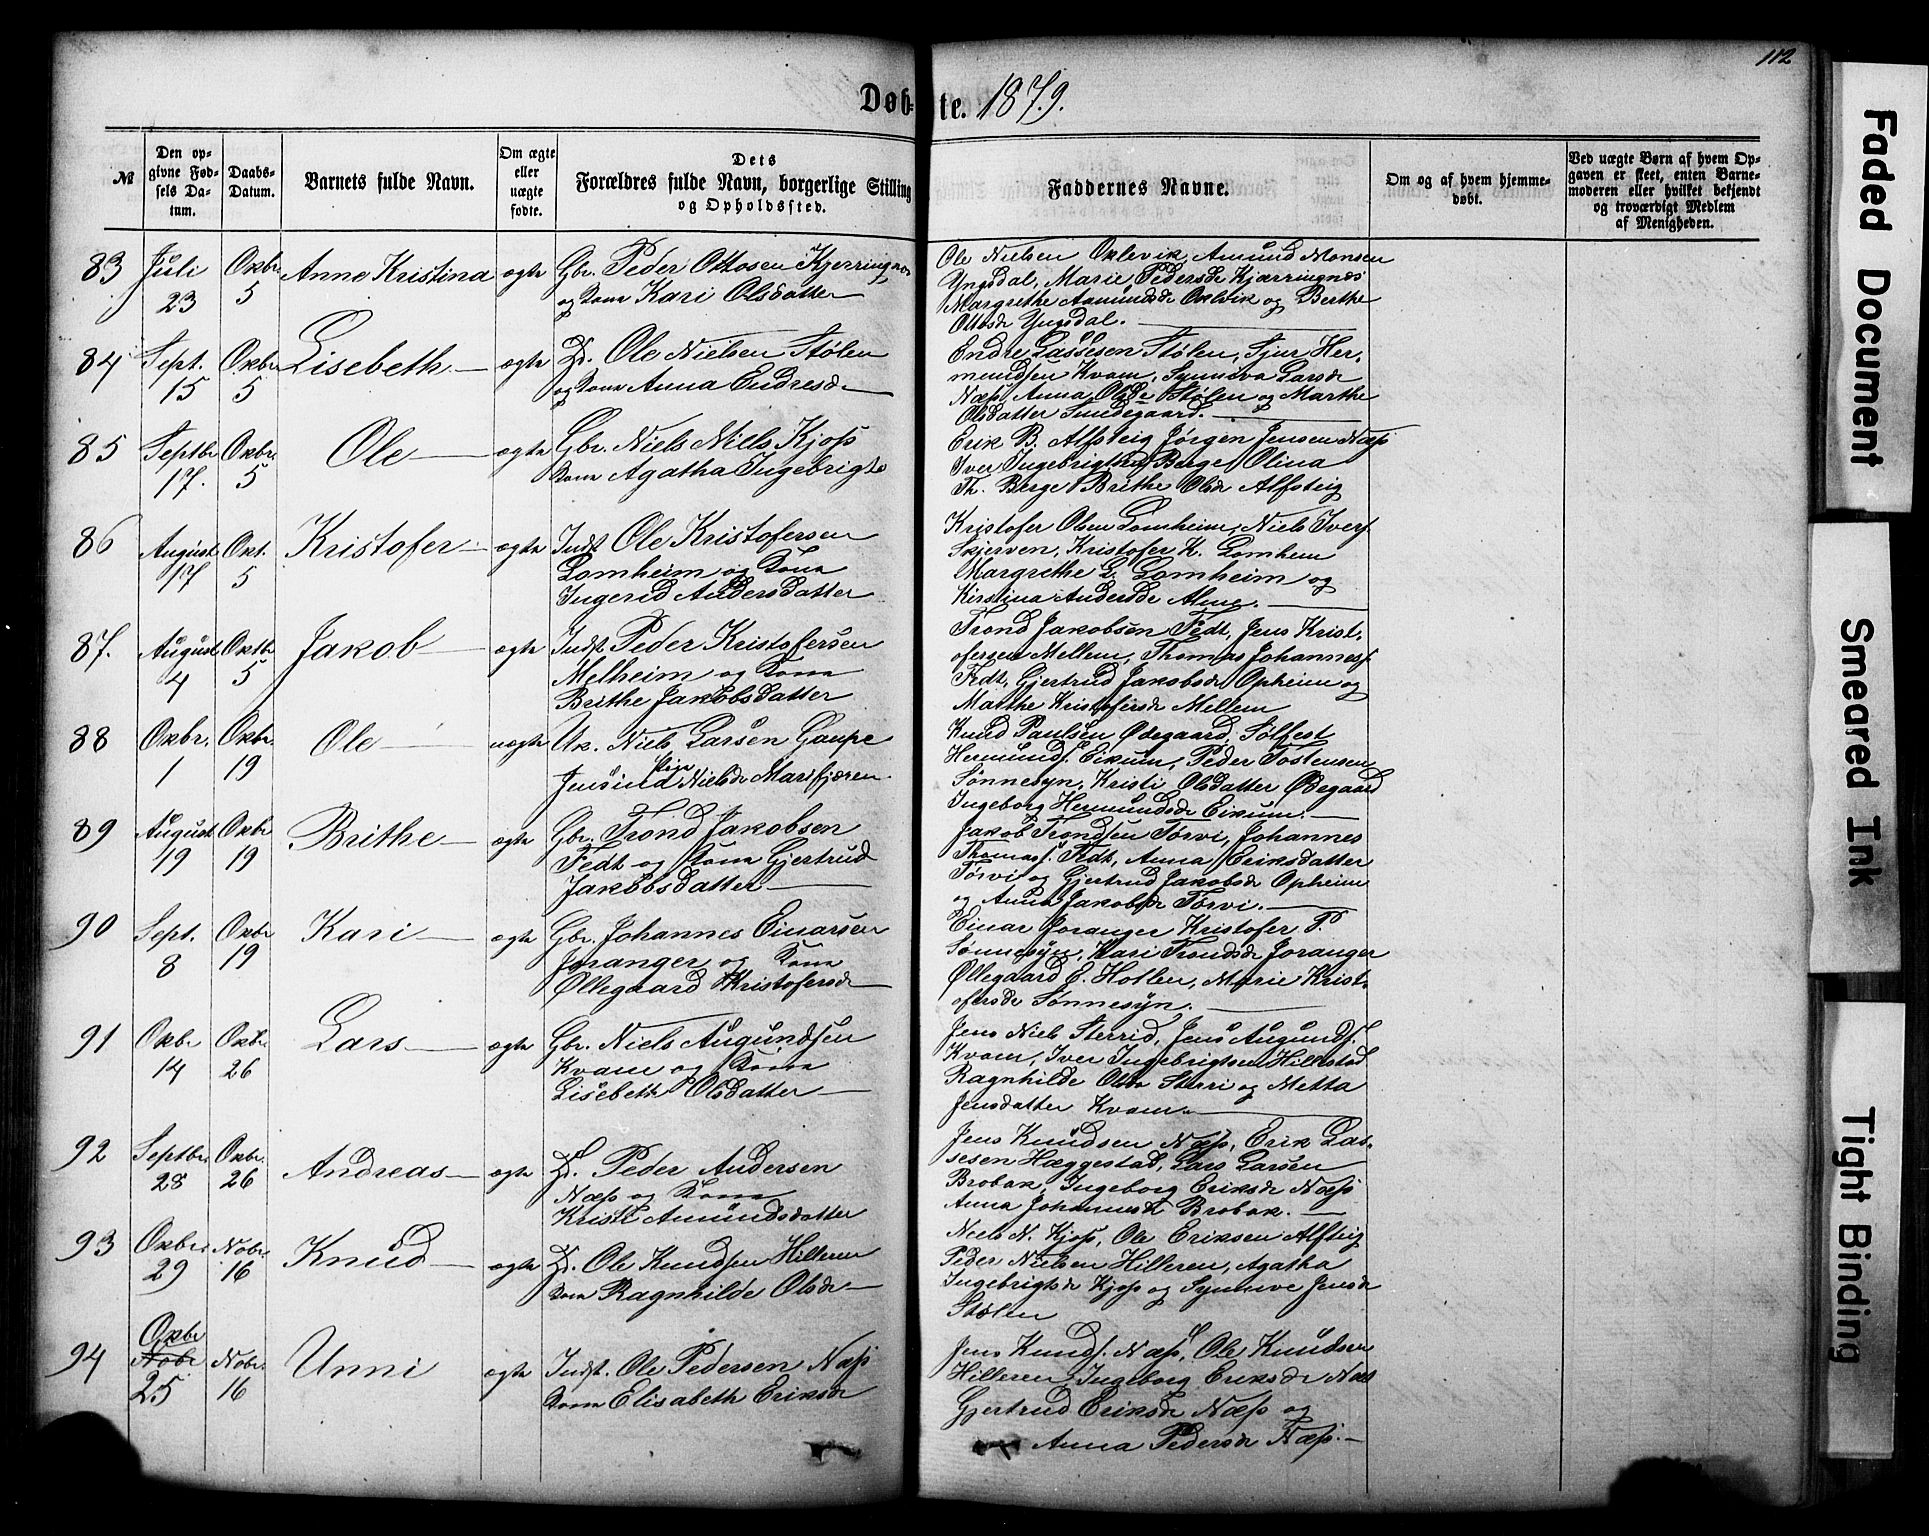 112
Døbte. 1879.
№
Den opgivne Fødsels Datum.
Daabs-Datum.
Barnets fulde Navn.
Om ægte eller uægte fødte.
Dets Forældres fulde Navn, borgerlige Stilling og Opholdssted.
Faddernes Navne.
Om og af hvem hjemmedøbt.
Ved uægte Børn af hvem Opgaven er skeet, enten Barnemoderen eller hvilket bekjendt og troværdigt Medlem af Menigheden.
83 Juli 23 Okbr 5 Anne Kristina ægte
Gbr. Peder Ottosen Kjerringnæs
og Kona Kari Olsdatter
Ole Nielsen Oklevik, Amund Monsen
Yngsdal, Marie Pedersdr Kjærringnæs
Margrethe Aamundsdr Oklvik og Berthe
Ottosdr Yngsdal.
84 Sept. 15 Okbr 5 Lisebeth ægte
Ds. Ole Nielsen Stølen
og Kona Anna Endresdr
Endre Lassesen Stølen, Sjur Her,
mundsen Kvam, Synneva Larsdr
Næss, Anna Olsdr Stølen og Marthe
Olsdatter Smedegaard.
85 Septbr 17. Okbr. 5 Ole ægte
Gbr. Niels Niels. Kjoss
Kona Agatha Ingebrigts
Erik B. Alfsteig Jørgen Jensen Næss
Iver Ingebrigtsen Berge Olina
Th. Berge Brithe Olsdr Alfsteig
86 August 17 Okt. 5 Kristofer ægte
Indst. Ole Kristofersen
Lomheim og Kona
Ingerid Andersdatter
Kristofer Olsen Lomheim, Niels Ivers.
Skjerven, Kristofer K. Lomheim
Margrethe G. Lomheim og
Kirstina Andersdr Alme.
87. August 4 Oktbr 5 Jakob ægte
Indst. Peder Kristofersen
Melheim og Kona
Brithe Jakobsdatter
Trond Jakobsen Fedt, Jens Krist,
ofersen Mellem, Thomas Johanness.
Fedt, Gjertrud Jakobsdr Opheim og
Marthe Kristofersdr Mellem
88 Okbr. 1 Okbr. 19 Ole uægte
Uk. Niels Larsen Gaupe
Pige
Jensine Nielsdr Marifjæren.
Knud Paulsen Ødegaard, Solfest
Hermunds. Eikum, Peder Tostensen
Sønnesyn, Kristi Olsdatter Ødegaard
Ingeborg Hermundsdr Eikum.
89 August 19 Okbr 19 Brithe ægte
Gbr. Trond Jakobsen
Fedt og Kona Gjertrud
Jakobsdatter
Jakob Trondsen Tørvi, Johannes
Thomass. Fedt, Anna Eriksdatter
Tørvi og Gjertrud Jakobsdr Opheim
og Anna Jakobsdr Tørvi.
90 Sept. 8 Okbr 19 Kari ægte
Gbr. Johannes Einarsen
Joranger og Kona
Øllegaard Kristofersdr
Einar Joranger Kristofer P.
Sønnesyn, Kari Trondsdr Joranger
Øllegaard E. Hollen, Marie Krist,
ofersdr Sønnesyn.
91 Okbr 14 Okbr. 26 Lars ægte
Gbr. Niels Augundsen
Kvam og Kona
Lisebeth Olsdatter
Jens Niels. Sterrid, Jens Augunds.
Kvam, Iver Ingebrigtsen Hillestad
Ragnhilde Olsdr Sterri og Metta
Jensdatter Kvam.
92 Septbr. 28 Okbr. 26 Andreas ægte
Ds. Peder Andersen
Næss og Kona
Kristi Amundsdatter
Jens Knudsen Næss, Erik Las-
sesen Hæggestad, Lars Larsen
Brobak, Ingeborg Eriksdr Næss
Anna Johannesdr Brobak.
93 Okbr. 29 Nobr. 16 Knud ægte
Ds. Ole Knudsen Hilleren
Kona Ragnhilde Olsdr
Niels N. Kjoss, Ole Eriksen Alfsteig
Peder Nielsen Hilleren, Agatha
Ingebrigtsdr Kjoss og Synneve Jensdr
Stølen
94 Okbr Nobr 25 Nobr. 16 Unni ægte
Indst. Ole Pedersen Næss
Kona Elisabeth Eriksdr
Jens Knuds. Næss, Ole Knudsen
Hilleren, Ingeborg Eriksdr Næs
Gjertrud Eriksdr Næss og
Anna Pedersdr Næss.
Faded Document
Smeared Ink
Tight Binding